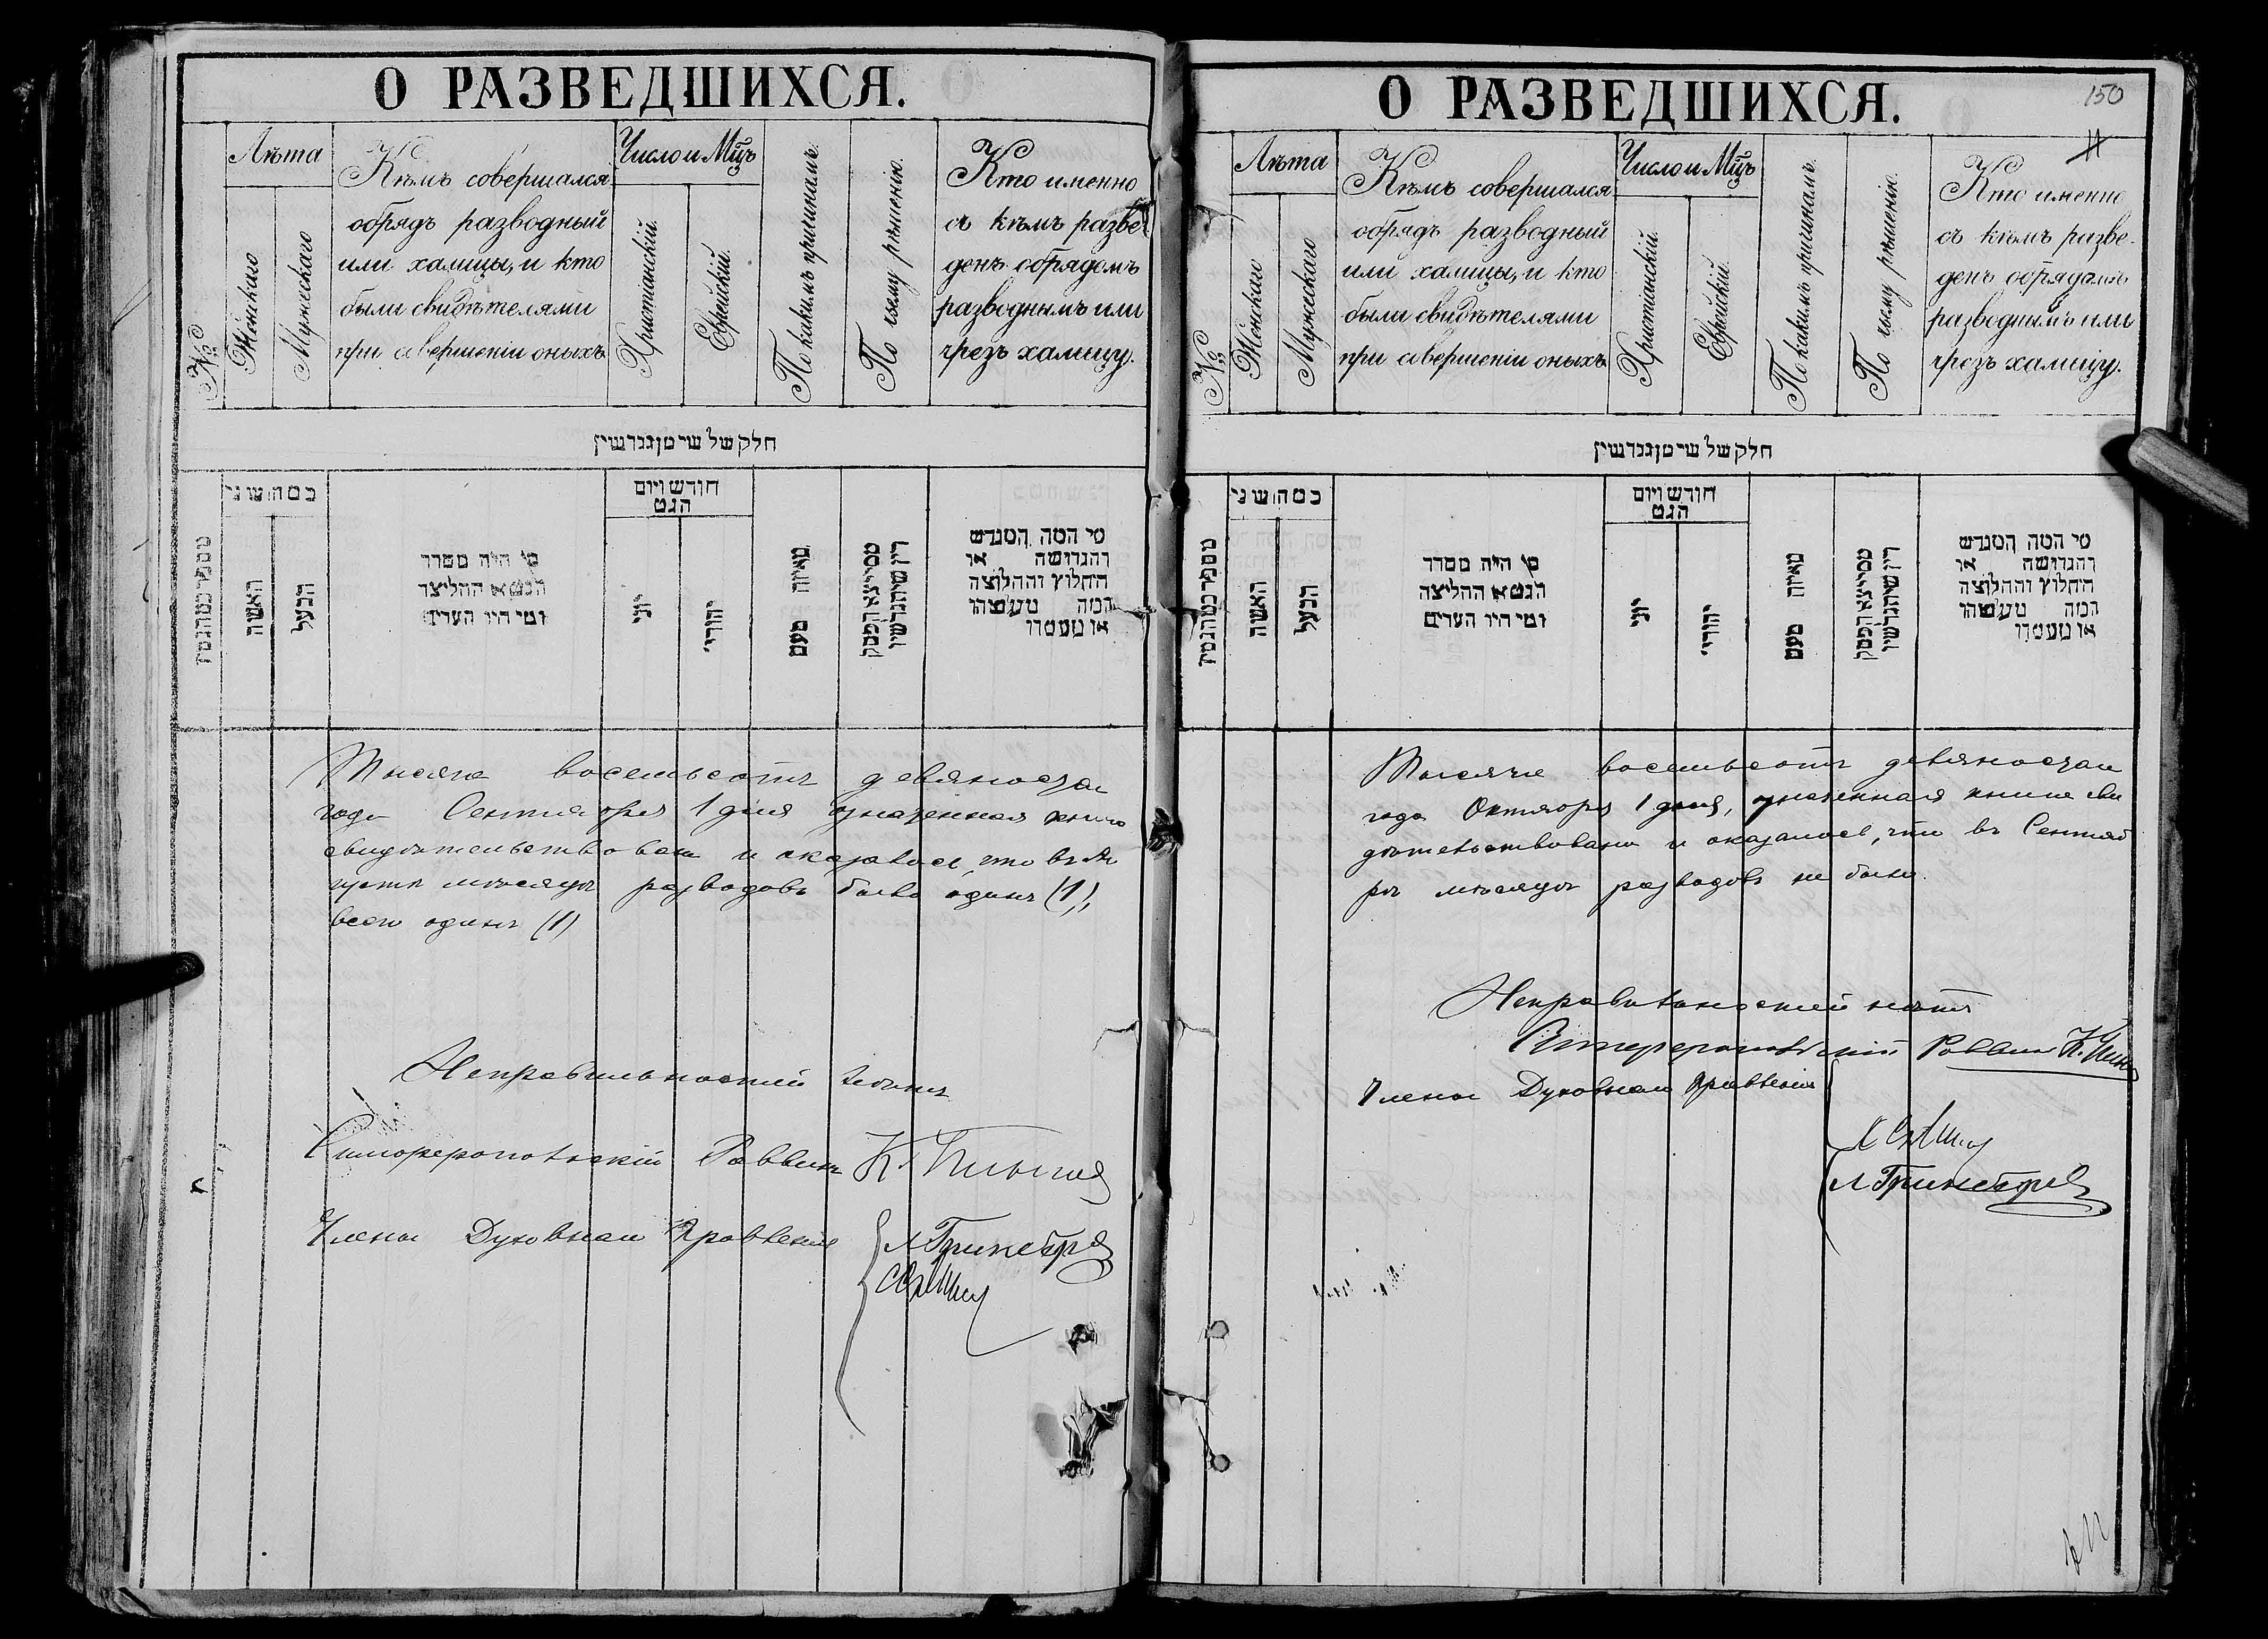 О РАЗВЕДШИХСЯ.
№
Лѣта
Женскаго
Мужескаго
Кѣмъ совершался
обрядъ разводный
или халицы, и кто
были свидѣтелями
при совершеніи оныхъ.
Число и Мц̃ъ
Христіанскій.
Еврейскій.
По какимъ причинамъ.
По чьему рѣшенію.
Кто именно
съ кѣмъ разве-
денъ обрядомъ
разводнымъ или
чрезъ халицу.
חלק של שי מן גרושין
האשה
הבעל
מי היה מסדר
הגט או החליצה
ומי היו העדים
חודש ויום
הגט
יוני
יהודי
מאיזה טעם
מי המה המגרש
והגרושה או
החלוץ והחלוצה
Тысяча восемьсотъ девяностаго
года Сентября 1 дня означенная книга
свидѣтельствована и оказалось, что въ Ав
густѣ мѣсяцѣ разводовъ было одинъ (1),
всего одинъ (1)
Неправильностей нѣтъ
Симферопольскій Раввинъ К.
Члены Духовнаго Правленія
О РАЗВЕДШИХСЯ.
150
11
№
Лѣта
Женскаго
Мужескаго
Кѣмъ совершался
обрядъ разводный
или халицы, и кто
были свидѣтелями
при совершеніи оныхъ.
Число и Мц̃ъ
Христіанскій.
Еврейскій.
По какимъ причинамъ.
По чьему рѣшенію.
Кто именно
съ кѣмъ разве-
денъ обрядомъ
разводнымъ или
чрезъ халицу.
חלק של שי מן גרושין
האשה
הבעל
מי היה מסדר
הגט או החליצה
ומי היו העדים
חודש ויום
הגט
יוני
יהודי
מאיזה טעם
מי המה המגרש
והגרושה או
החלוץ והחלוצה
Тысяча восемьсотъ девяностаго
года Октября 1 дня, означенная книга сви
дѣтельствована и оказалось, что въ Сентяб
рѣ мѣсяцѣ разводовъ не было.
Неправильностей нѣтъ
Симферопольскій Раввинъ К.
Члены Духовнаго Правленія